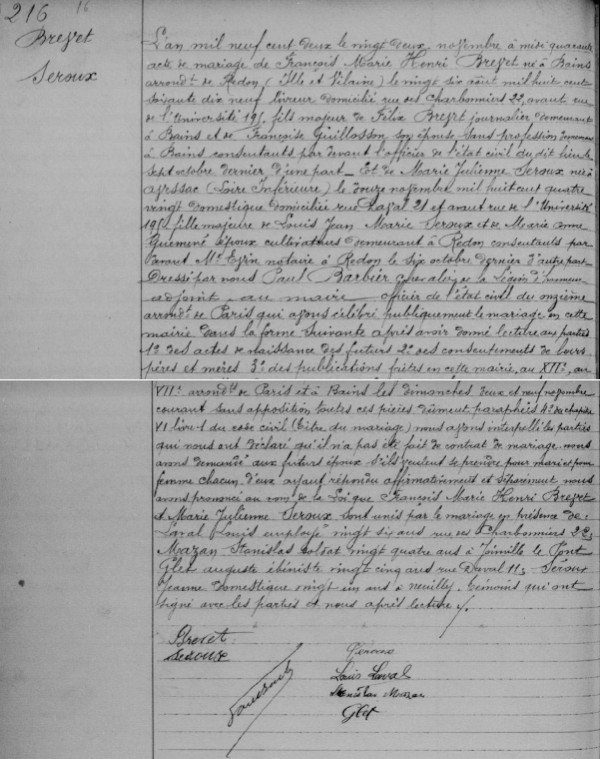 216 16
Brevet
Seroux
L'an mil neuf cent deux le vingt deux novembre à midi quarante
acte de mariage de François Marie Henri Brevet né à Bains
arrondt. de Redon (Ille et Vilaine) le vingt six août mil huit cent
soixante dix neuf livreur domicilié rue des Charbonniers 22, avant rue
de l'Université 195, fils majeur de Félix Brevet journalier demeurant
à Bains et de Françoise Guillosson son épouse sans profession demeurant
à Bains consentants par devant l'officier de l'état civil du dit lieu le
sept octobre dernier d'une part _ Et de Marie Julienne Seroux née à
Avessac (Loire Inférieure) le douze novembre mil huit cent quatre
vingt domestique domiciliée rue 21 et avant rue de l'Université
195, fille majeure de Louis Jean Marie Seroux et de Marie Anne
Guémené époux cultivateurs demeurant à Redon consentants par
devant Me notaire à Redon le six octobre dernier d'autre part
Dressé par nous Paul Barbier chevalier de la Légion d'honneur
adjoint au maire officier de l'état civil du onzième
arrondt. de Paris qui avons célébré publiquement le mariage en cette
mairie dans la forme suivante après avoir donné lecture aux parties
1º des actes de naissance des futurs 2º des consentements de leurs
pères et mères 3º des publications faites en cette mairie, au XIIe, au
VIIe arrondts de Paris et à Bains les dimanches deux et neuf novembre
courant sans opposition toutes ces pièces dûment paraphées 4º du chapitre
VI livre 1 du code civil (titre du mariage) nous avons interpellé les parties
qui nous ont déclaré qu'il n'a pas été fait de contrat de mariage nous
avons demandé aux futurs époux s'ils veulent se prendre pour mari et pour
femme chacun d'eux ayant répondu affirmativement et séparément nous
avons prononcé au nom de la Loi que François Marie Henri Brevet
et Marie Julienne Seroux sont unis par le mariage en présence de:
Laval Louis employé vingt six ans rue des Charbonniers 22;
Mazan Stanislas soldat vingt quatre ans à Joinville le Pont
Glet Auguste ébéniste vingt cinq ans rue 11; Séroux
Jeanne domestique vingt un ans à Neuilly. témoins qui ont
signé avec les parties et nous après lecture ./.
Brevet
Seroux
Seroux
Louis Laval
Stanislas Mazan
Glet